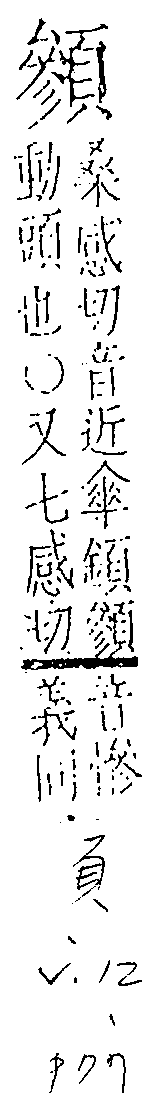 䫩
桑感切音近傘顉䫩
動頭也○又七感切
音慘
義同
頁
v.12